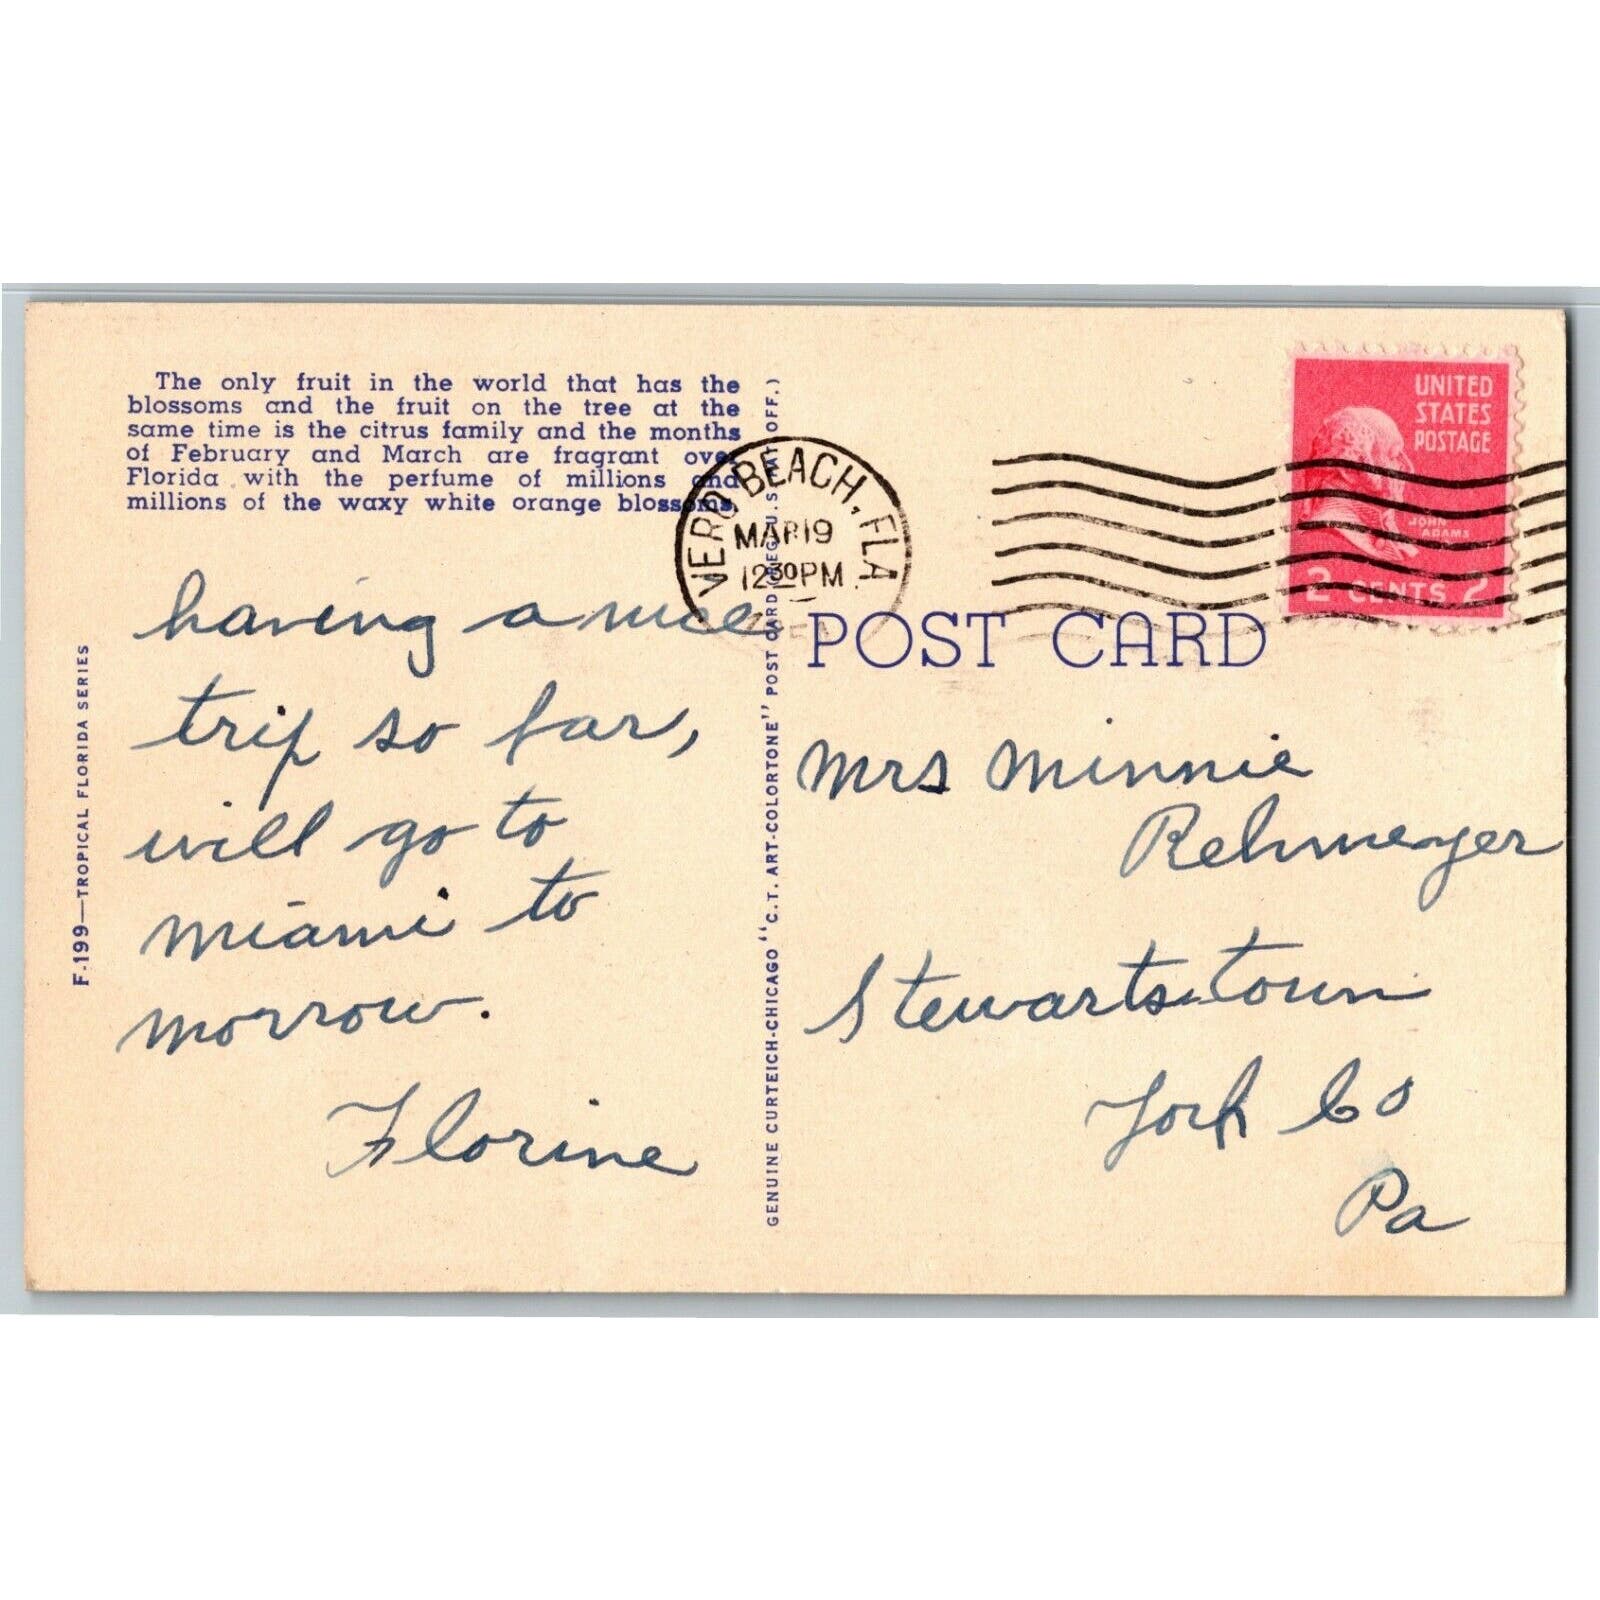 The only fruit in the world that has the
blossoms and the fruit on the tree at the
same time is the citrus family and the months
of February and March are fragrant over
Florida with the perfume of millions and
millions of the waxy white orange blossoms.
having a nice
trip so far,
will go to
Miami to
morrow.
Florine
F-199—TROPICAL FLORIDA SERIES
GENUINE CURTEICH-CHICAGO "C.T. ART-COLORTONE" POST CARD (REG. U.S. PAT. OFF.)
VERO BEACH, FLA.
MAR 19
12 30 PM
UNITED
STATES
POSTAGE
JOHN
ADAMS
2 CENTS 2
POST CARD
Mrs Minnie
Rehmeyer
Stewartstown
York Co
Pa